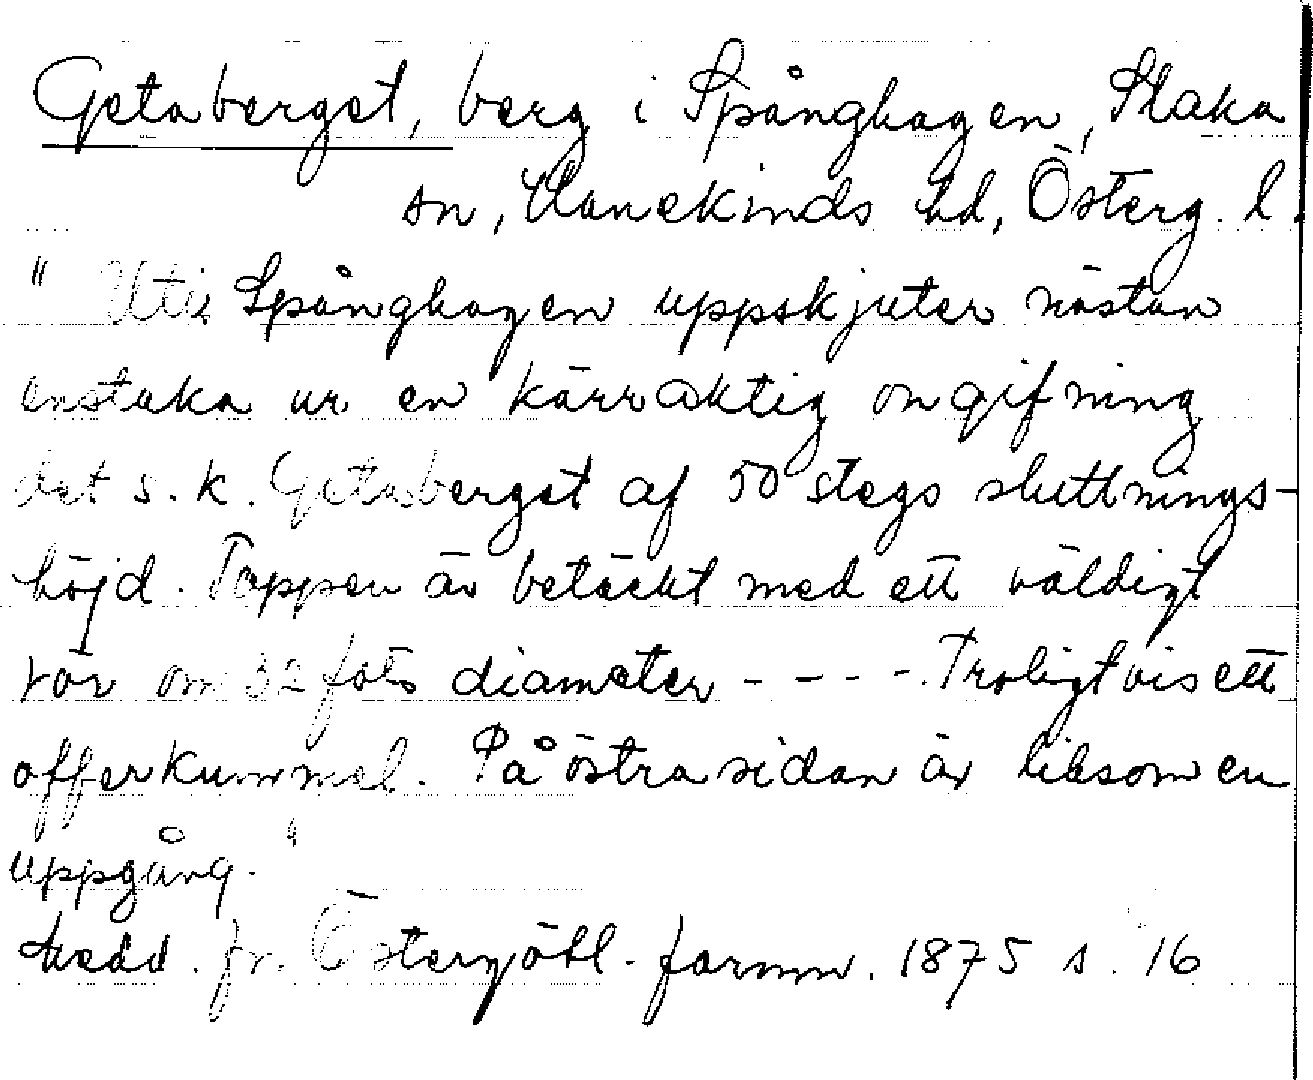 Getaberget, berg i Spånghagen, Slaka
sn, Hanekinds hd, Österg. l.
" Uti Spånghagen uppskjuter nästan
enstaka ur en kärraktig omgifning
det s. k. Getaberget af 50 stegs sluttnings-
höjd. Toppen är betäckt med ett väldigt
rör om 32 fots diameter - - - -. Troligtvis ett
offerkummel. På östra sidan är liksom en
uppgång."
Medd. fr. Östergötl. fornm. 1875 s. 16